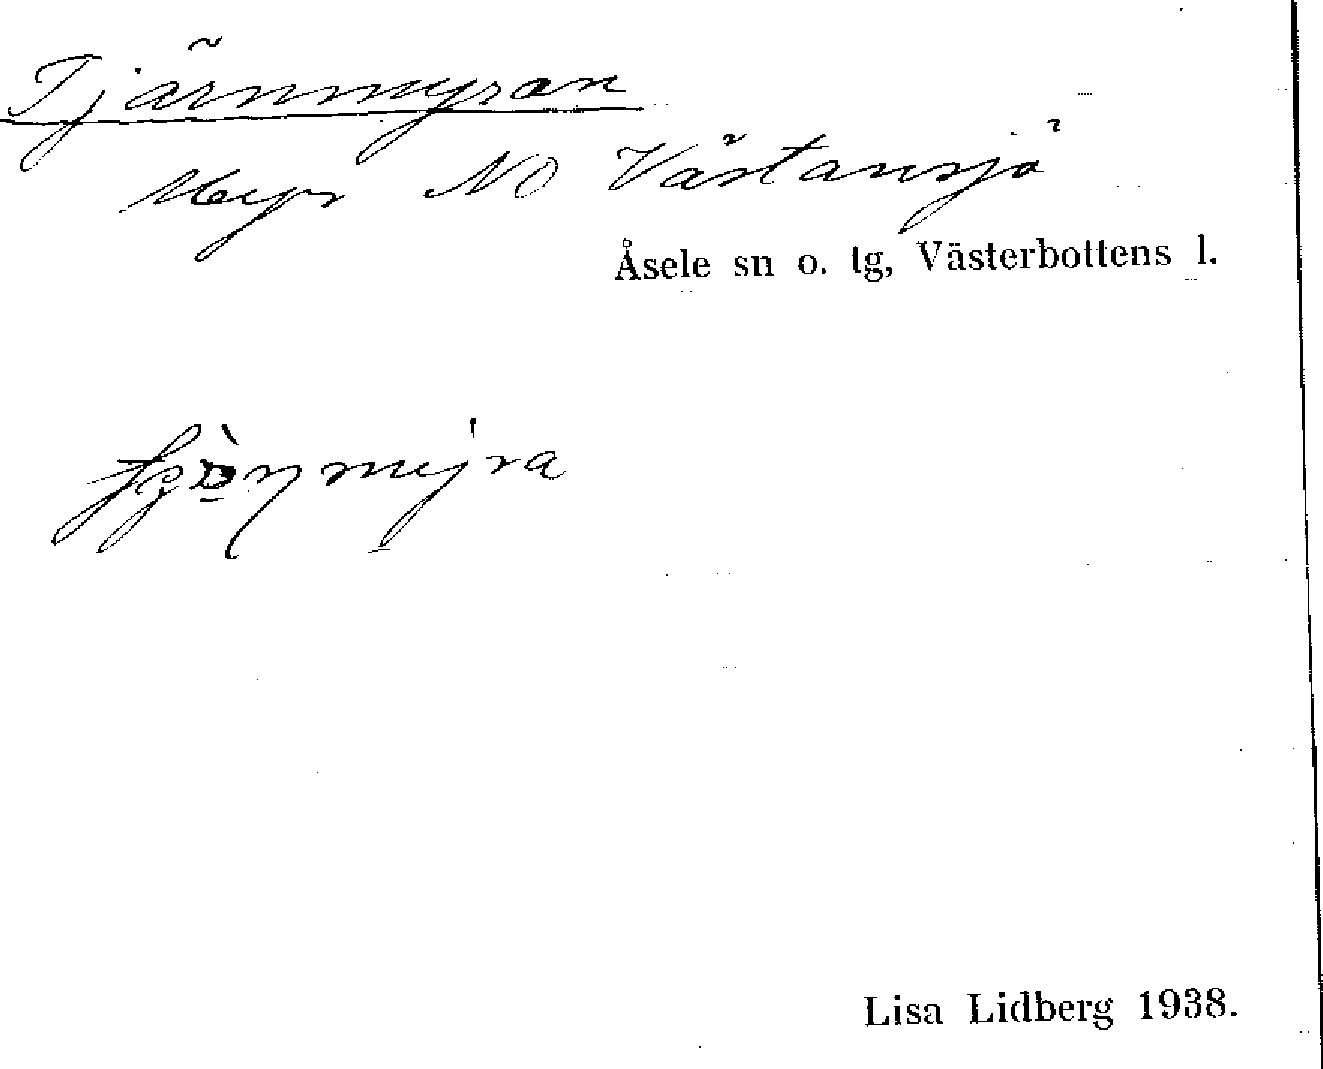 Tjärnmyran
Myr NO Västansjö
Åsele sn o. lg, Västerbottens l.
Lisa Lidberg 1938.